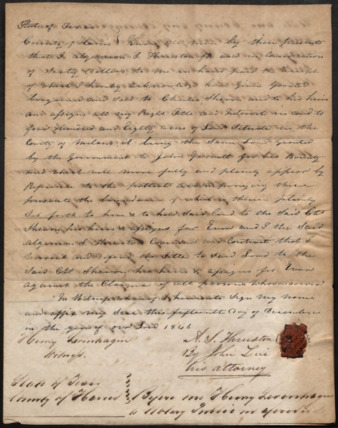 State of Texas
County of Harris Know all men by these presents
that I Algernon S. Thruston for and in consideration
of Sixty Dollars to me in hand paid the receipt
of which I hereby acknowledge have given granted
bargained and sold to Charles and to his heirs
and assigns all my Right title and interest in and to
four Hundred and Eighty acres of Land situate in the
County of being the same land granted
by the Government to John for his Bounty
and which will more fully and plainly appear by
Reference to the patent accompanying these
presents the boundaries of which is therein plainly
set forth to have & to hold said land to the said Chs
his heirs & assigns for Ever and I the said
Algernon S Thruston Covenant and contract that I
warrant and defend the title to said Land to the
said Chs his heirs & assigns for Ever
against the Claims of all persons whomsoever
In Witness whereof I hereunto Sign my name
and affix my seal this fifteenth day of December
in the year of our Lord 1846
Henry A. S. Thruston
By John
his attorney
State of Texas
County of Harris Before me Henry
a Notary Public in